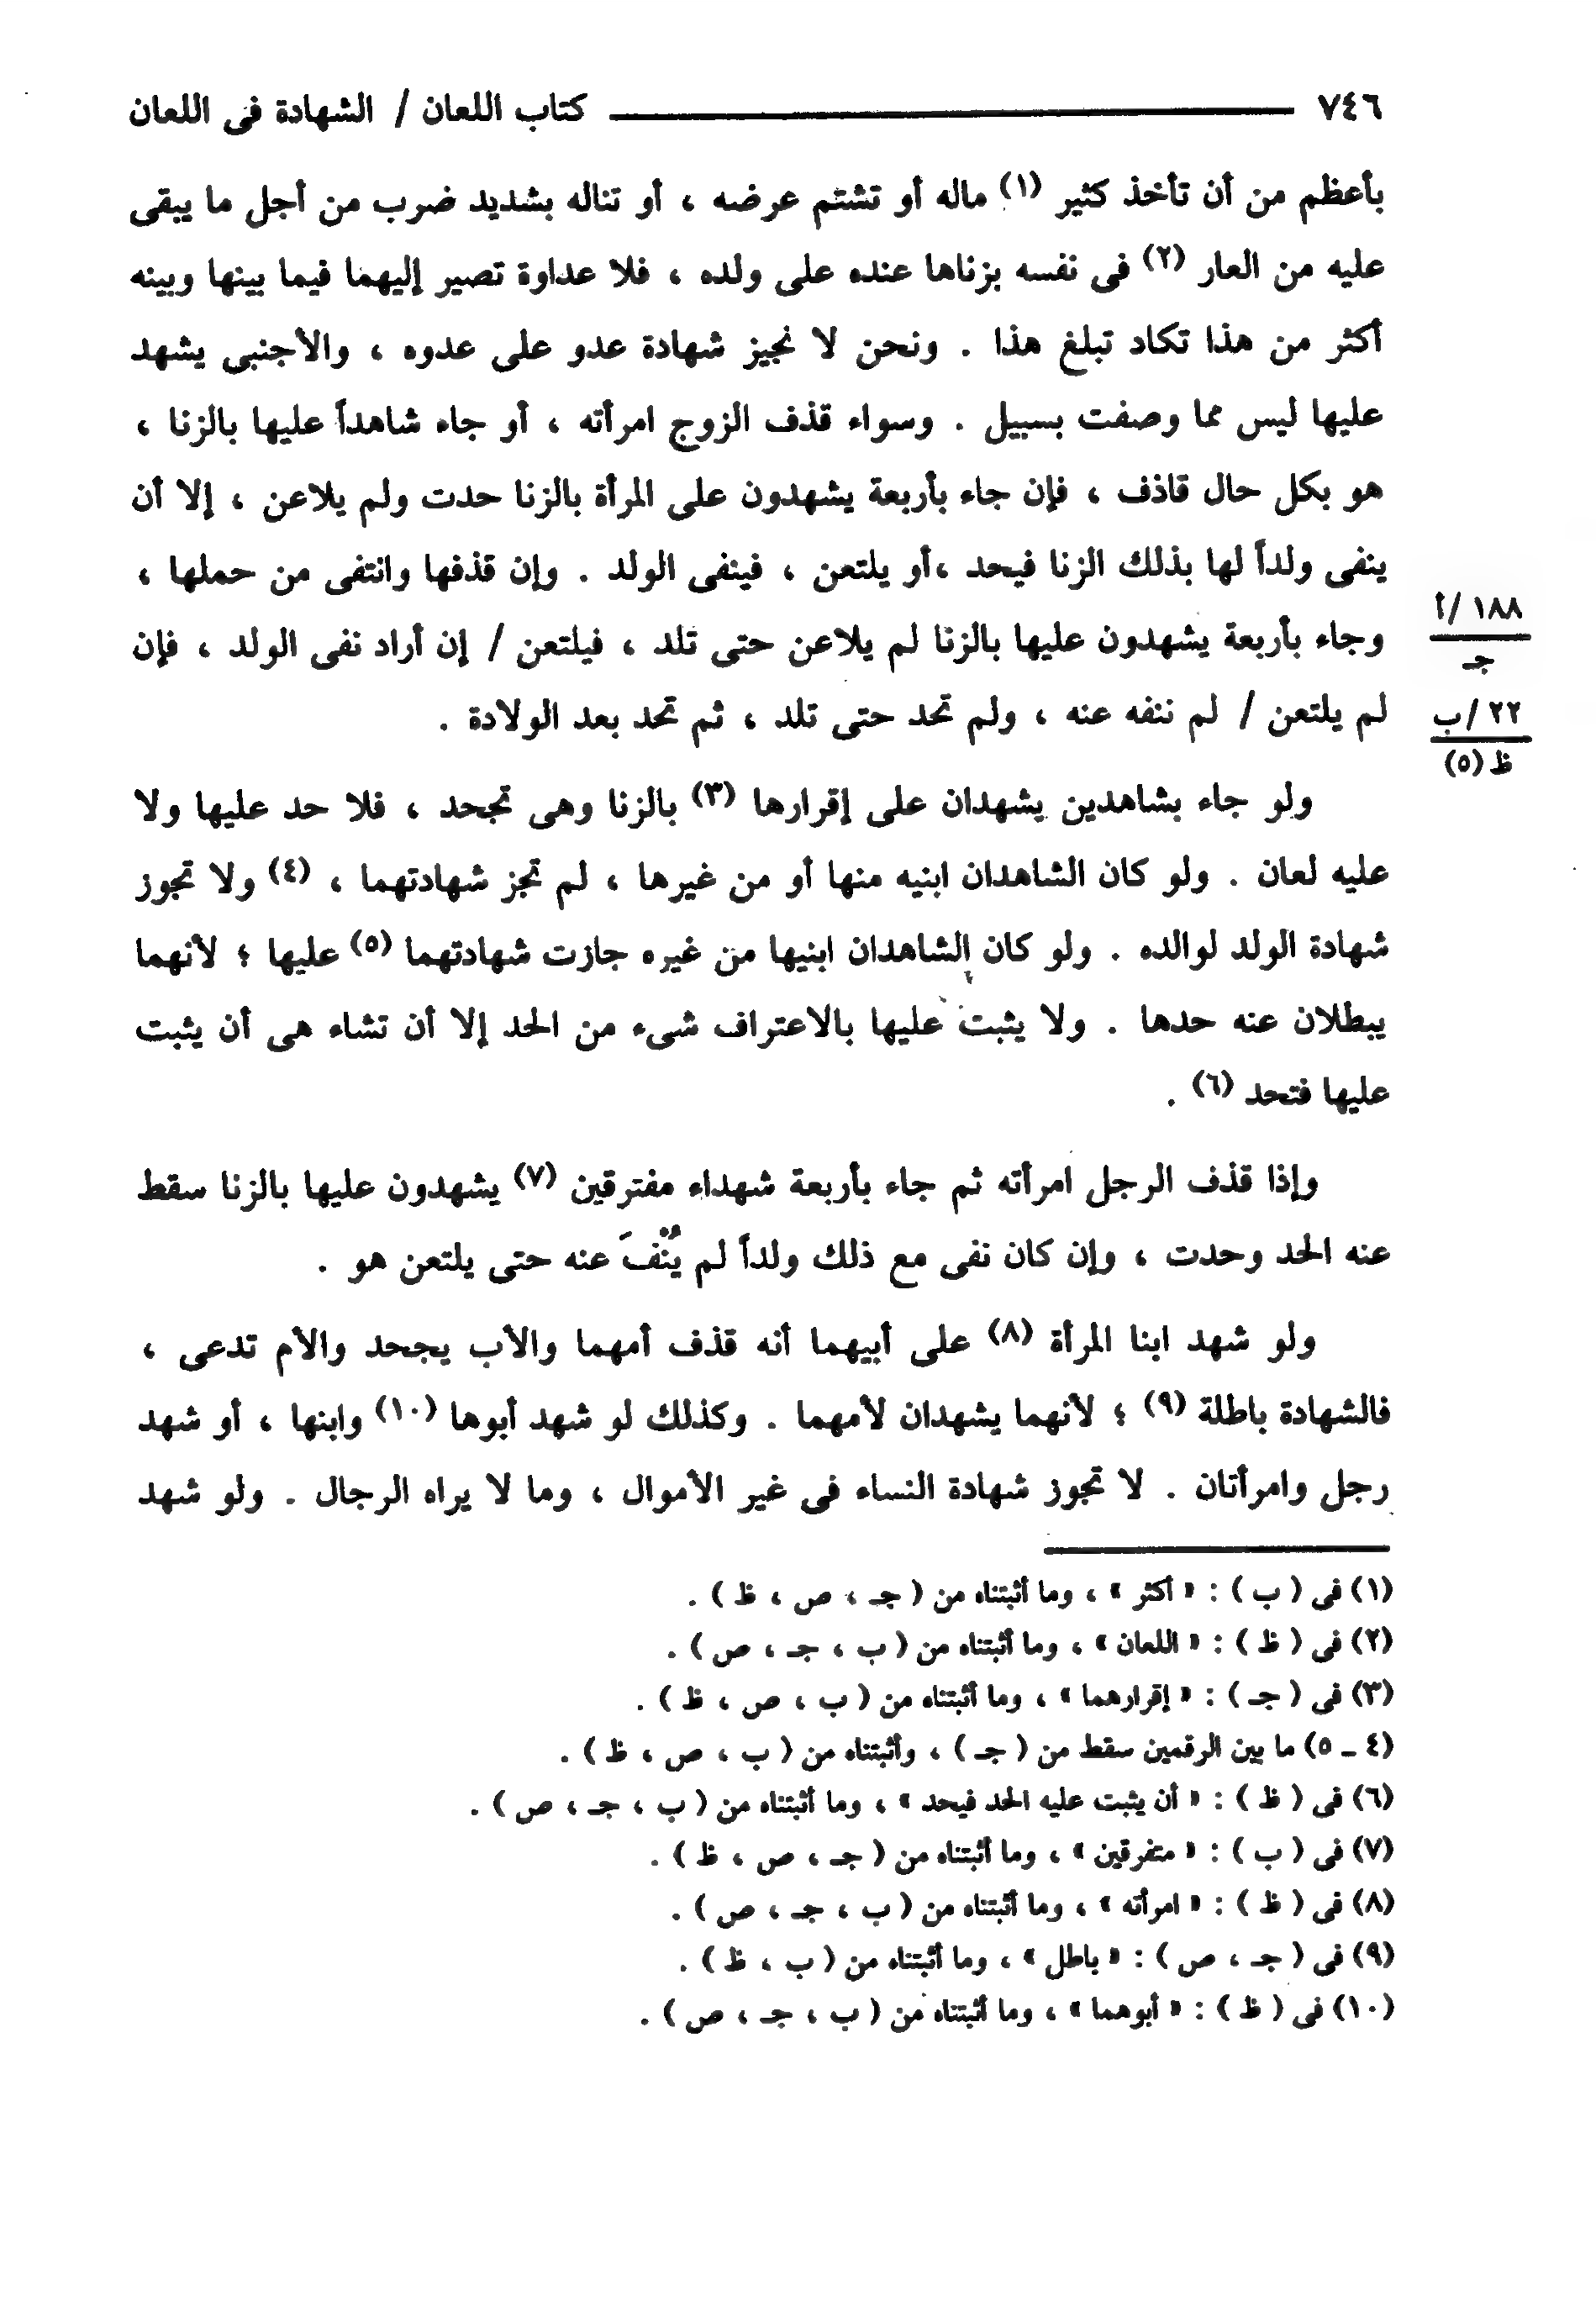 ٧٤٦ كتاب اللعان / الشهادة فى اللعان
بأعظم من أن تأخذ كثير (١) ماله أو تشتم عرضه ، أو تناله بشديد ضرب من أجل ما يبقى
عليه من العار (٢) فى نفسه بزناها عنده على ولده ، فلا عداوة تصير إليهما فيما بينها وبينه
أكثر من هذا تكاد تبلغ هذا . ونحن لا نجيز شهادة عدو على عدوه ، والأجنبى يشهد
عليها ليس مما وصفت بسبيل . وسواء قذف الزوج امرأته ، أو جاء شاهداً عليها بالزنا ،
هو بكل حال قاذف ، فإن جاء بأربعة يشهدون على المرأة بالزنا حدت ولم يلاعن ، إلا أن
ينفى ولداً لها بذلك الزنا فيحد ،أو يلتعن ، فينفى الولد . وإن قذفها وانتفى من حملها ،
وجاء بأربعة يشهدون عليها بالزنا لم يلاعن حتى تلد ، فيلتعن / إن أراد نفى الولد ، فإن
١٨٨ /أ
جـ
لم يلتعن / لم ننفه عنه ، ولم تحد حتى تلد ، ثم تحد بعد الولادة .
٢٢ /ب
ظ (٥)
ولو جاء بشاهدين يشهدان على إقرارها (٣) بالزنا وهى تجحد ، فلا حد عليها ولا
عليه لعان . ولو كان الشاهدان ابنيه منها أو من غيرها ، لم تجز شهادتهما ، (٤) ولا تجوز
شهادة الولد لوالده . ولو كان الشاهدان ابنيها من غيره جازت شهادتهما (٥) عليها ؛ لأنهما
يبطلان عنه حدها . ولا يثبت عليها بالاعتراف شىء من الحد إلا أن تشاء هى أن يثبت
عليها فتحد (٦) .
وإذا قذف الرجل امرأته ثم جاء بأربعة شهداء مفترقين (٧) يشهدون عليها بالزنا سقط
عنه الحد وحدت ، وإن كان نفى مع ذلك ولداً لم يُنْفَ عنه حتى يلتعن هو .
ولو شهد ابنا المرأة (٨) على أبيهما أنه قذف أمهما والأب يجحد والأم تدعى ،
فالشهادة باطلة (٩) ؛ لأنهما يشهدان لأمهما . وكذلك لو شهد أبوها (١٠) وابنها ، أو شهد
رجل وامرأتان . لا تجوز شهادة النساء فى غير الأموال ، وما لا يراه الرجال . ولو شهد
(١) فى ( ب ) : « أكثر » ، وما أثبتناه من ( جـ ، ص ، ظ ) .
(٢) فى ( ظ ) : « اللعان » ، وما أثبتناه من ( ب ، جـ ، ص ) .
(٣) فى ( جـ ) : « إقرارهما » ، وما أثبتناه من ( ب ، ص ، ظ ) .
(٤ ـ ٥) ما بين الرقمين سقط من ( جـ ) ، وأثبتناه من ( ب ، ص ، ظ ) .
(٦) فى ( ظ ) : « أن يثبت عليه الحد فيحد » ، وما أثبتناه من ( ب ، جـ ، ص ) .
(٧) فى ( ب ) : « متفرقين » ، وما أثبتناه من ( جـ ، ص ، ظ ) .
(٨) فى ( ظ ) : « امرأته » ، وما أثبتناه من ( ب ، جـ ، ص ) .
(٩) فى ( جـ ، ص ) : « باطل » ، وما أثبتناه من ( ب ، ظ ) .
(١٠) فى ( ظ ) : « أبوهما » ، وما أثبتناه من ( ب ، جـ ، ص ) .